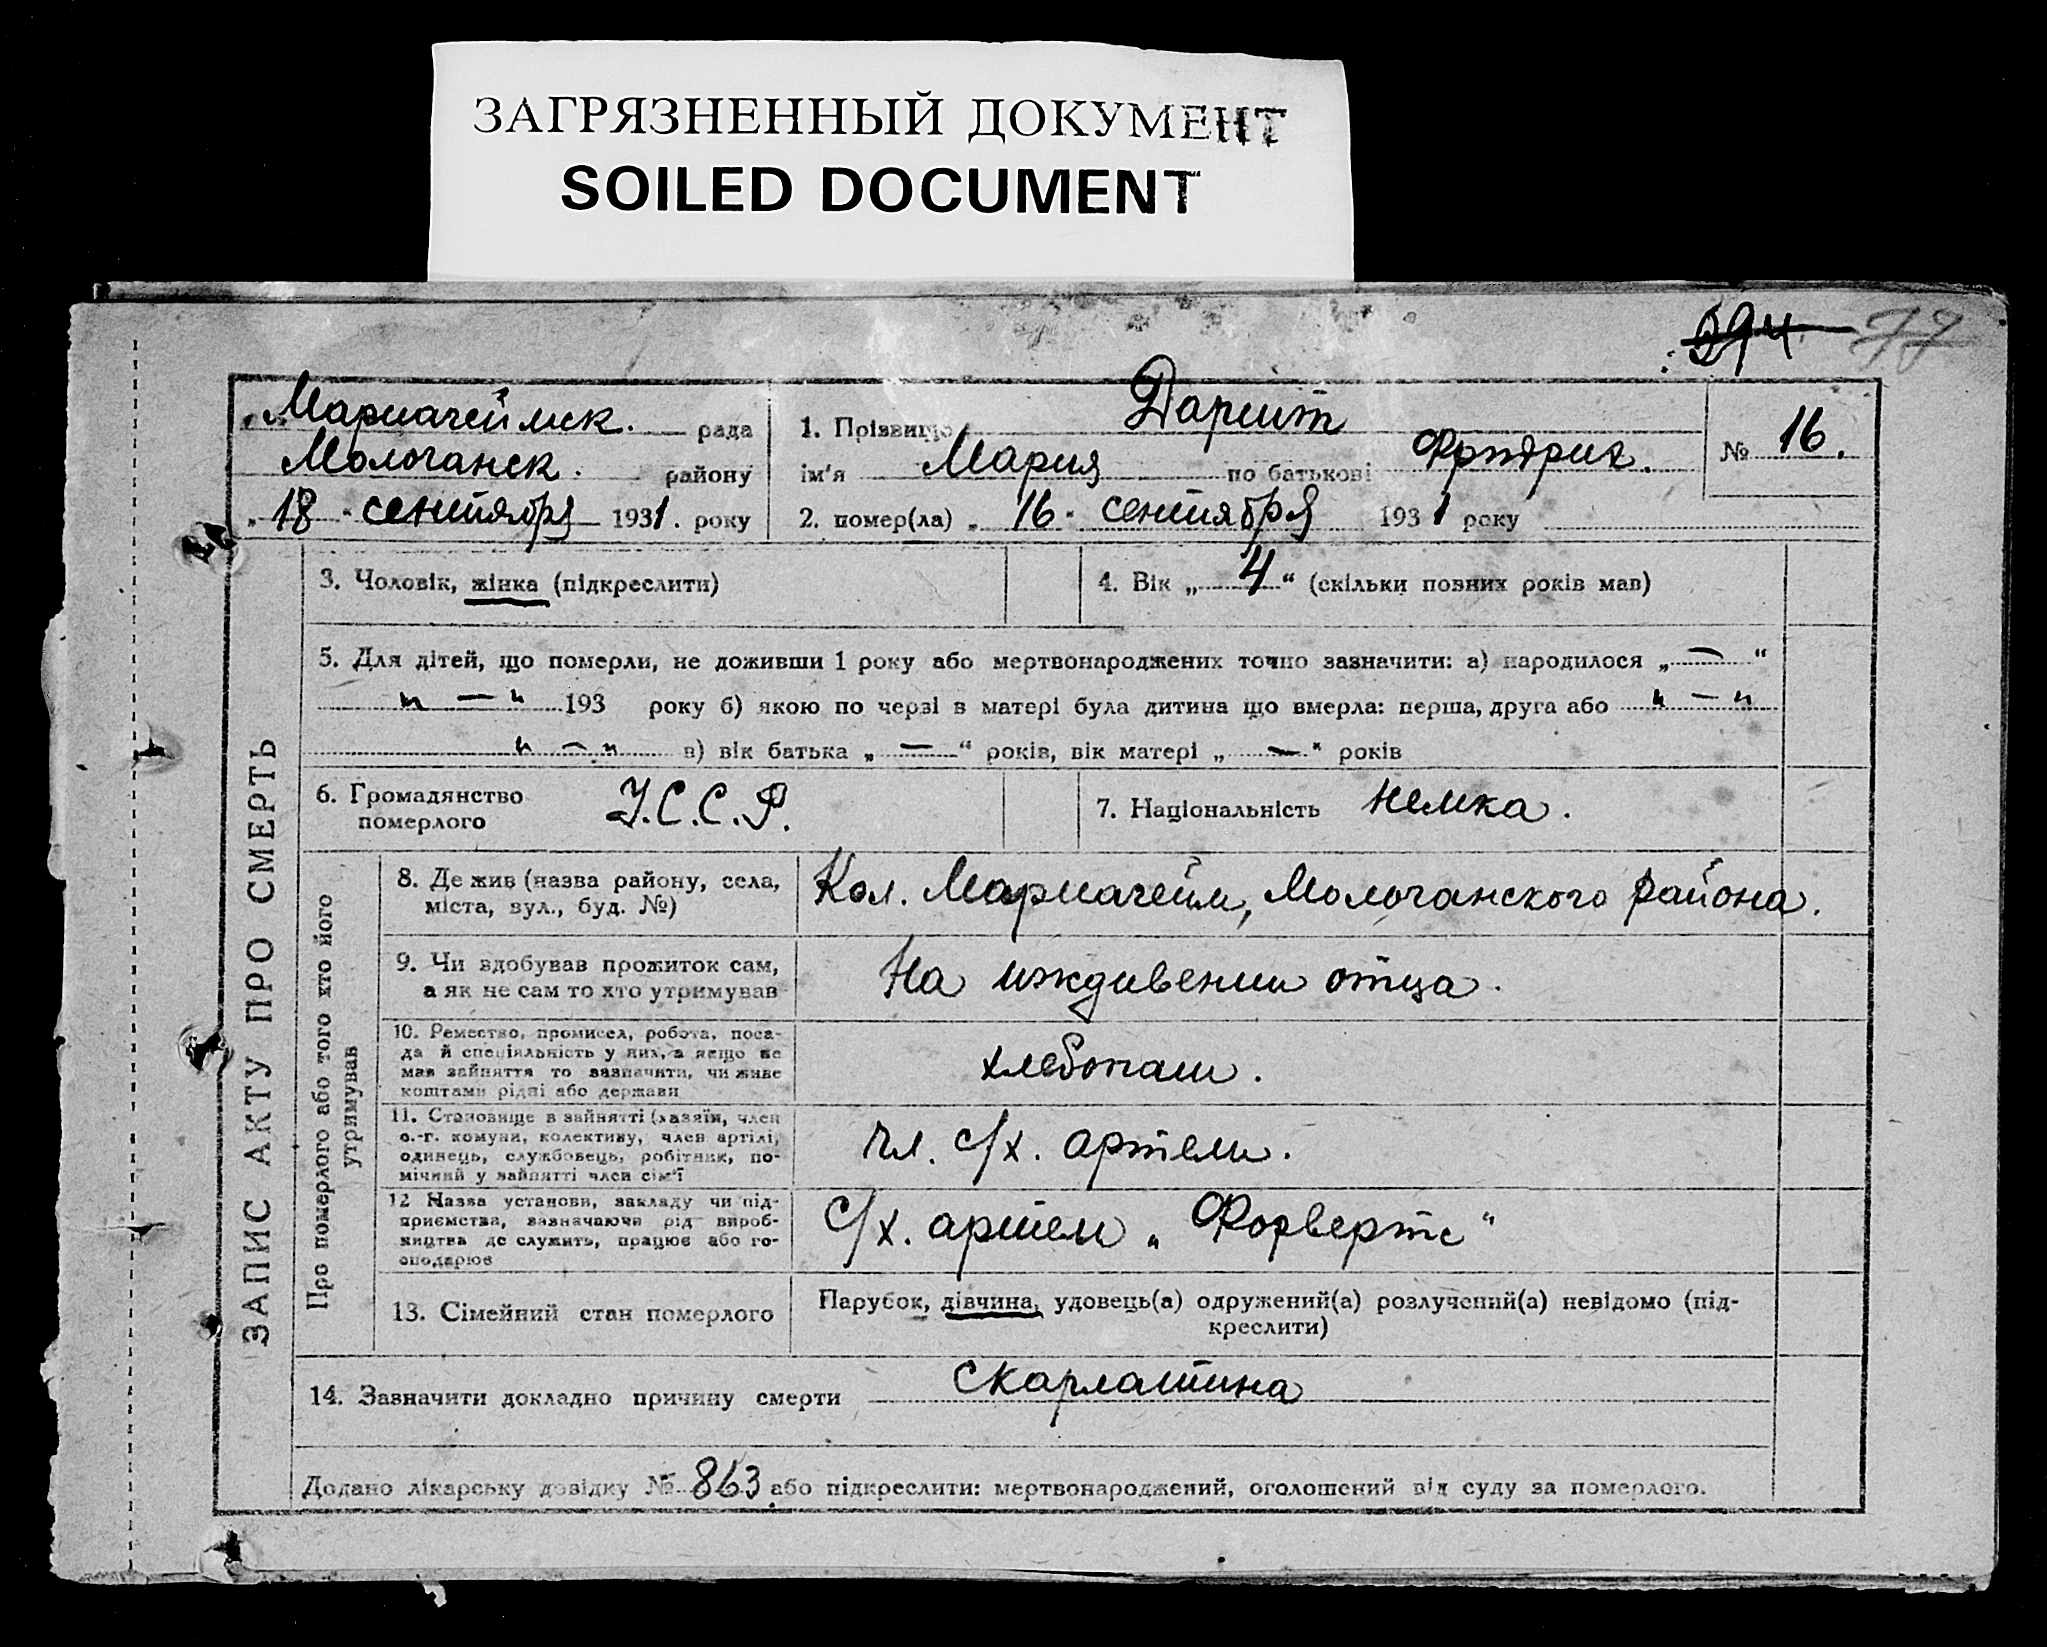 ЗАГРЯЗНЕННЫЙ ДОКУМЕНТ
SOILED DOCUMENT
594 77
Мариагеймск. рада
Молочанск. району
„18“ сентября 1931. року
1. Прізвище Дармит
ім'я Мария по батькові Фридрих.
2. помер(ла) „16“ сентября 1931 року
№ 16.
ЗАПИС АКТУ ПРО СМЕРТЬ
3. Чоловік, жінка (підкреслити)
4. Вік „4“ (скільки повних років мав)
5. Для дітей, що померли, не доживши 1 року або мертвонароджених точно зазначити: а) народилося „—“
„—“ 193 року б) якою по черзі в матері була дитина що вмерла: перша, друга або „—“
„—“ в) вік батька „—“ років, вік матері „—“ років
6. Громадянство
померлого У.С.С.Р.
7. Національність немка.
Про померлого або того хто його
утримував
8. Де жив (назва району, села,
міста, вул., буд. №)
Кол. Мариагейм, Молочанского района.
9. Чи здобував прожиток сам,
а як не сам то хто утримував
На иждивении отца.
10. Ремество, промисел, робота, поса-
да й спеціяльність у них, а якщо не
мав зайняття то зазначити, чи живе
коштами рідні або держави
хлебопаш.
11. Становище в зайнятті (хазяїн, член
с.-г. комуни, колективу, член артілі,
одинець, службовець, робітник, по-
мічний у зайнятті член сім'ї
чл. с/х. артели.
12 Назва установи, закладу чи під-
приємства, зазначаючи рід вироб-
ництва де служить, працює або го-
сподарює
с/х. артели „Форвертс“
13. Сімейний стан померлого
Парубок, дівчина, удовець(а) одружений(а) розлучений(а) невідомо (під-
креслити)
14. Зазначити докладно причину смерти скарлатина
Додано лікарську довідку № 863 або підкреслити: мертвонароджений, оголошений від суду за померлого.